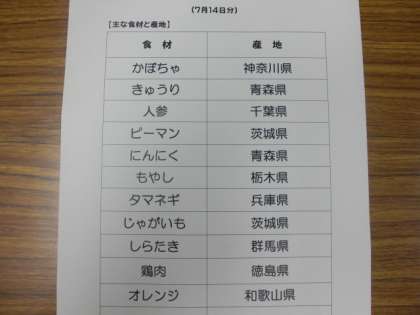 (7月14日分)
【主な食材と産地】
食 材 産 地
かぼちゃ 神奈川県
きゅうり 青森県
人参 千葉県
ピーマン 茨城県
にんにく 青森県
もやし 栃木県
タマネギ 兵庫県
じゃがいも 茨城県
しらたき 群馬県
鶏肉 徳島県
オレンジ 和歌山県